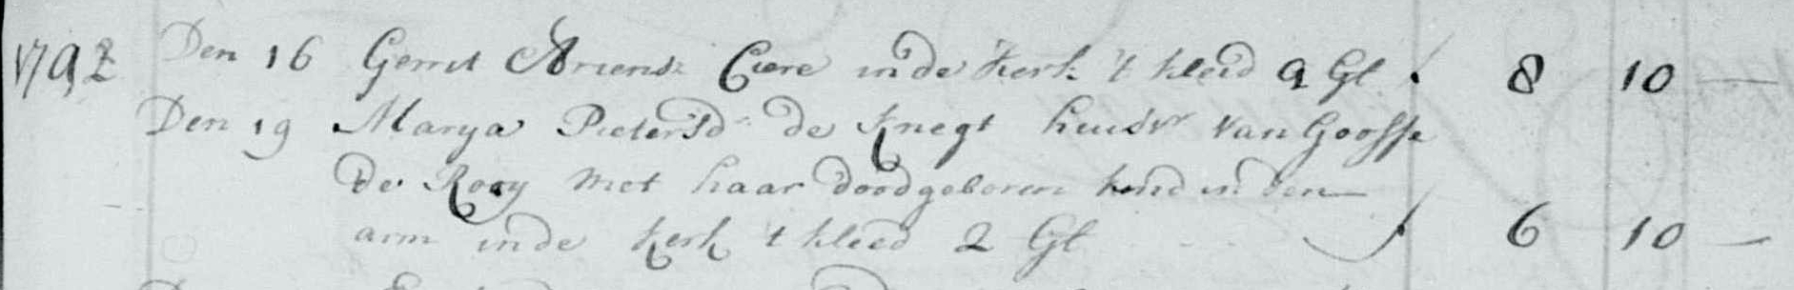 1792 Den 16 Gerrit Ariensz Ciere inde kerk 't kleed 9 Gl 8 10 —
Den 19 Marya Pieters d de Knegt huisvr van Goosse
de Rooy met haar doodgeboren kind in den
arm inde kerk 't kleed 2 Gl 6 10 —